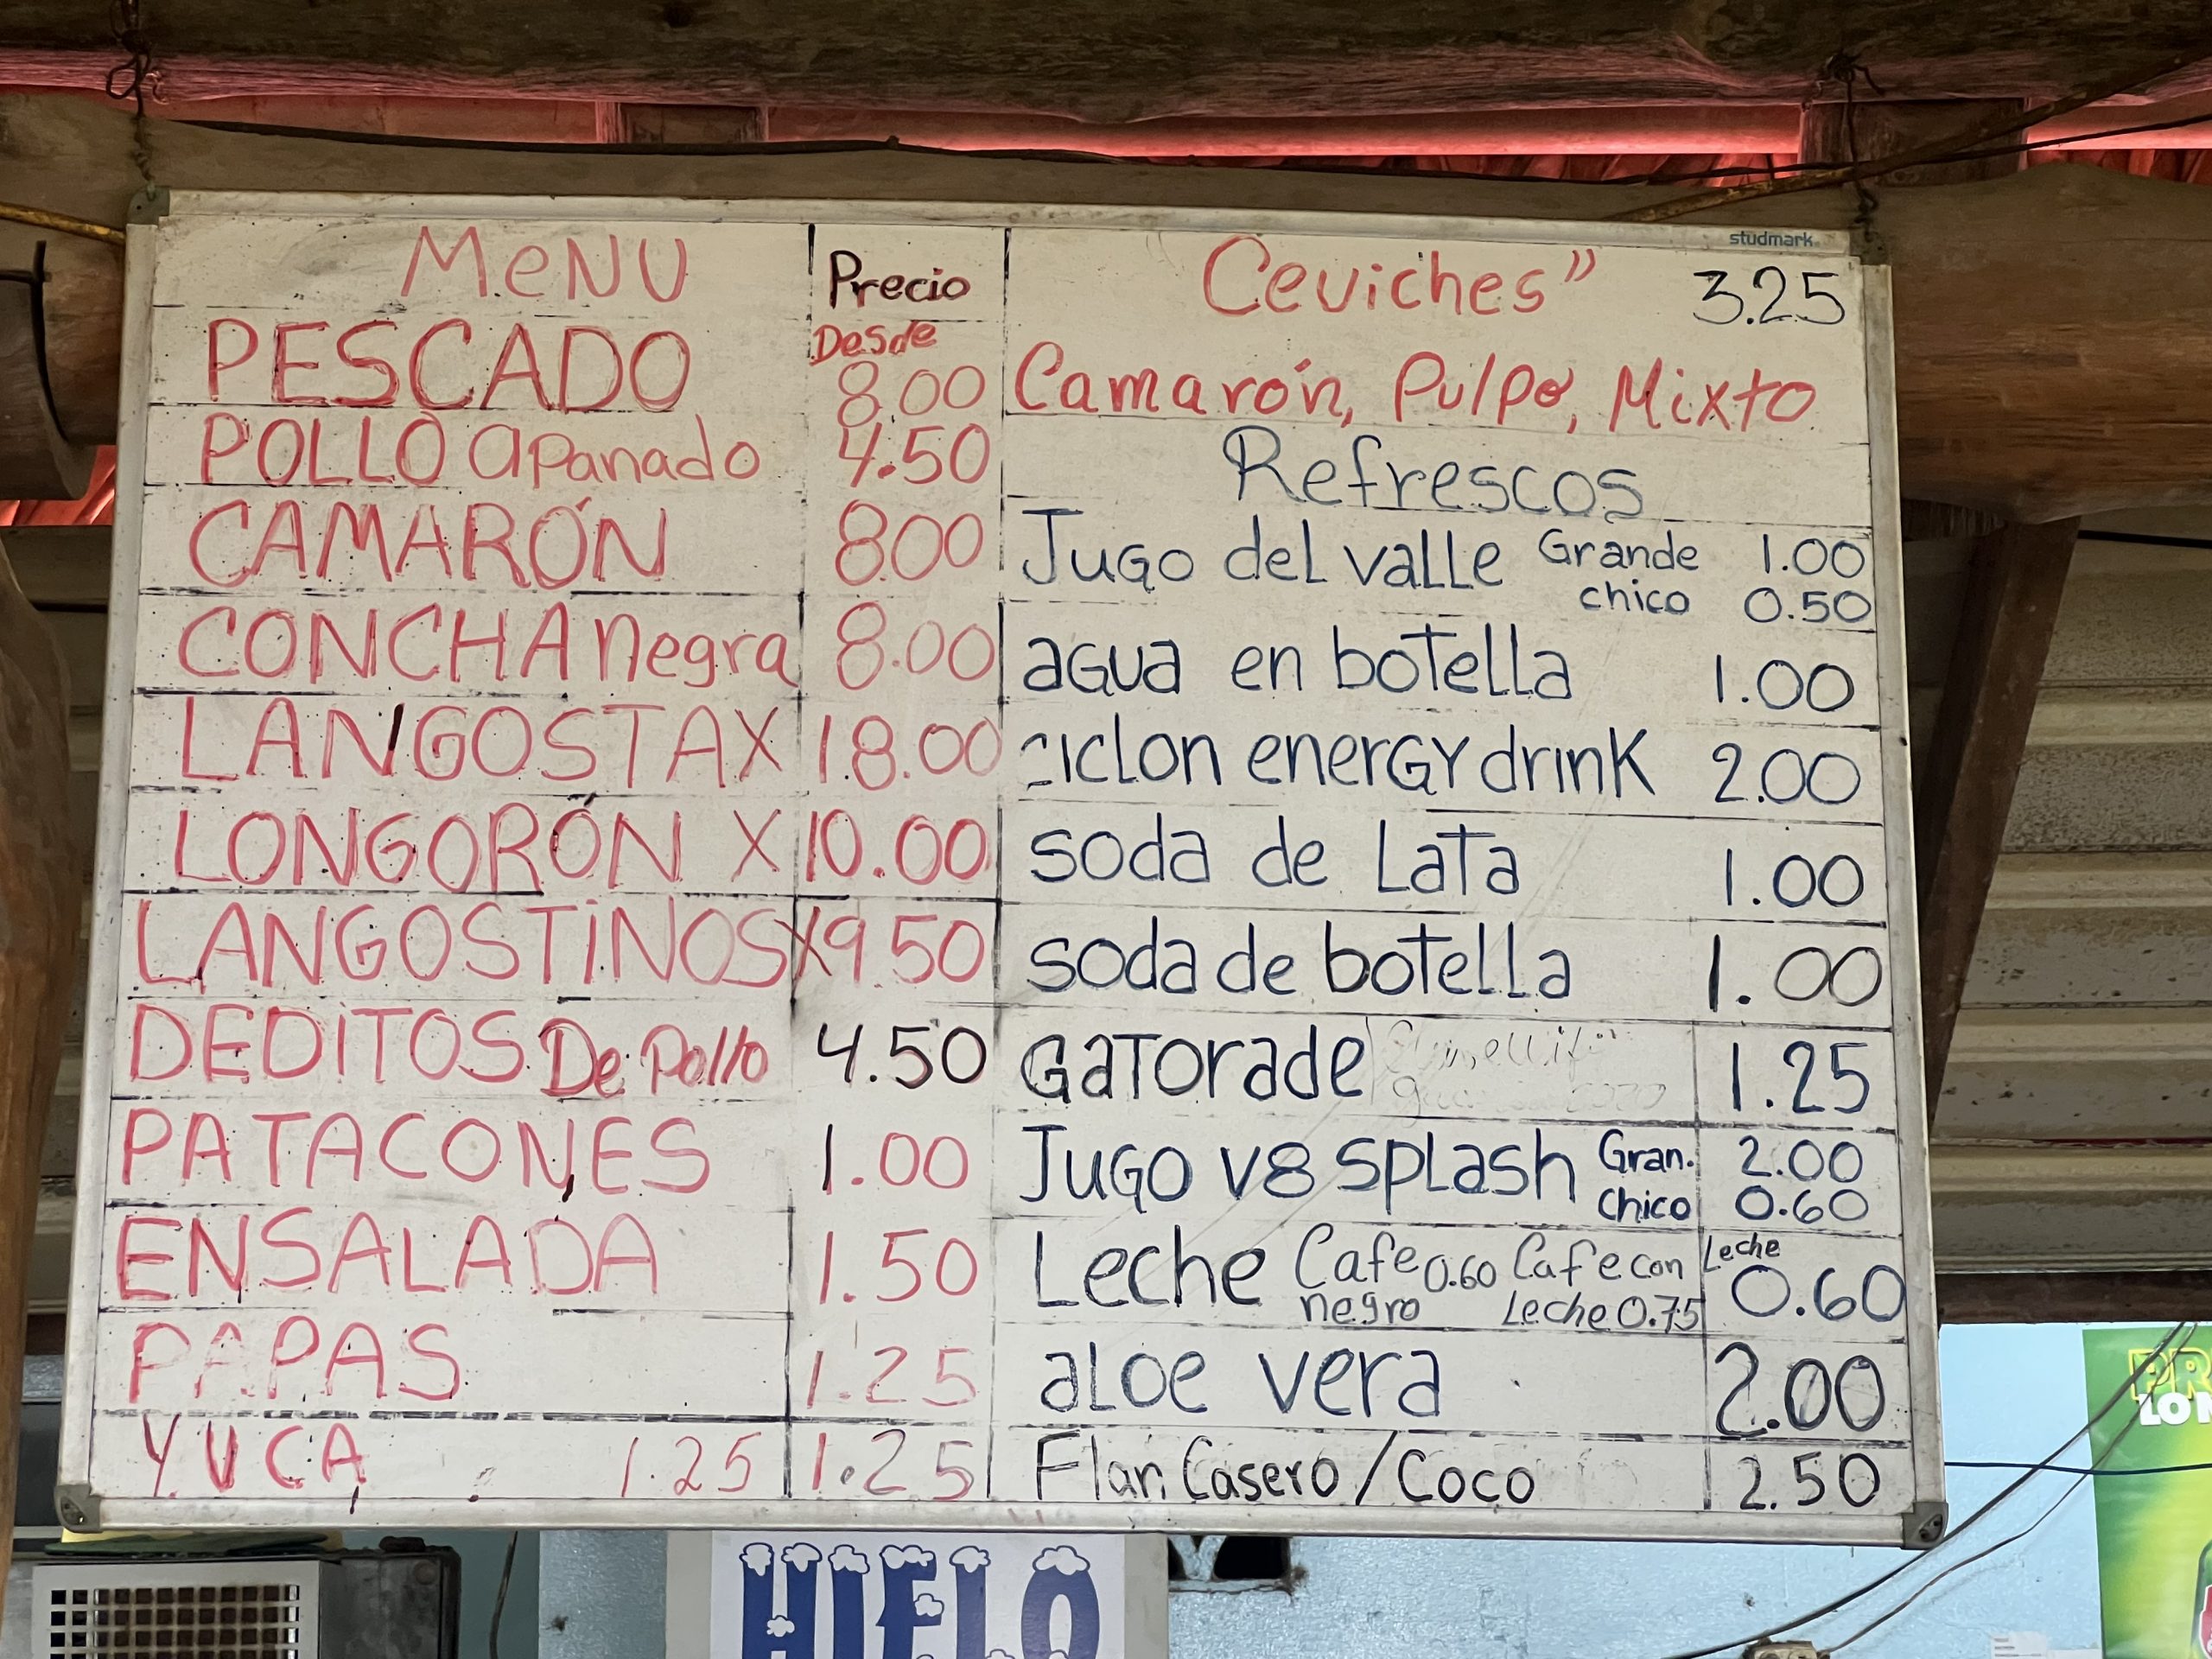 MeNU Precio
PESCADO Desde 8.00
POLLO apanado 4.50
CAMARÓN 8.00
CONCHA negra 8.00
LANGOSTA X 18.00
LONGORÓN X 10.00
LANGOSTINOS X 9.50
DEDITOS De Pollo 4.50
PATACONES 1.00
ENSALADA 1.50
PAPAS 1.25
YUCA 1.25 1.25
studmark
"Ceviches" 3.25
Camarón, Pulpo, Mixto
Refrescos
Jugo del valle Grande 1.00
chico 0.50
agua en botella 1.00
ciclon energy drink 2.00
soda de Lata 1.00
soda de botella 1.00
Gatorade 1.25
Jugo v8 splash Gran. 2.00
chico 0.60
Leche Cafe negro 0.60 Cafe con Leche 0.75 Leche 0.60
aloe vera 2.00
Flan Casero/Coco 2.50
HIELO